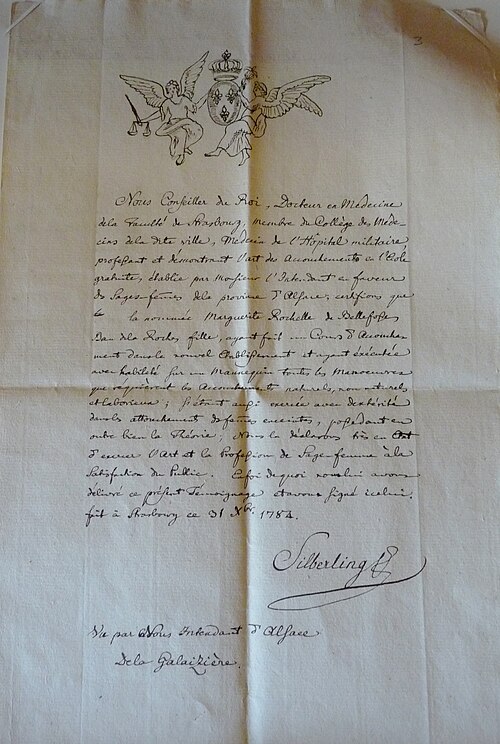 3
Nous Conseiller du Roi, Docteur en Medecine
de la Faculté de Strasbourg, membre du Collège des Méde-
cins de la dite ville, Médecin de l'Hôpital militaire
professant et démontrant l'art des Accouchements en l'Ecole
gratuite, établie par Monsieur l'Intendant en faveur
des Sages-femmes de la province d'Alsace, certifions que
la nommée Marguerite Rochelle de Bellefosse
Ban de la Roche fille, ayant fait un Cours d'Accouche-
ment dans le nouvel Etablissement et ayant exécutée
avec habilité sur un Mannequin toutes les Manoeuvres
que réquièrent les Accouchements naturels, non naturels
et laborieux; s'étant aussi exercée avec dextérité
dans les attouchements de femmes enceintes, possédant en
outre bien la Théorie; Nous la déclarons très en Etat
d'exercer l'Art et la Profession de Sage-femme à la
Satisfaction du Public. En foi de quoi nous lui avons
délivré ce présent Témoignage et avons signé icelui.
fait à Strasbourg ce 31 Xbre 1784.
Silberling
Vu par Nous Intendant d'Alsace
De la Galaizière.